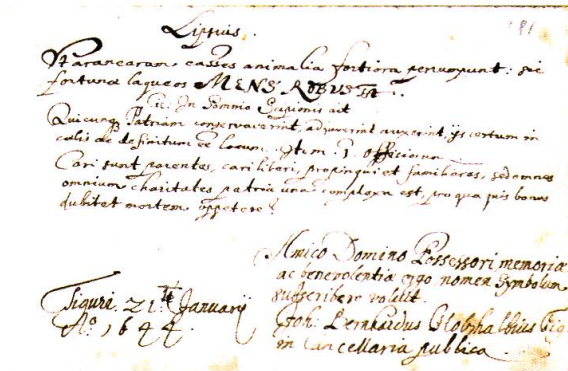 181
Lipsius.
Ut aranearum casses animalia fortiora perrumpunt: sic
fortunæ laqueos MENS ROBUSTA.
Cic: In Somnio Scipionis ait
Quicunq Patriam conservaverint, adjuverint auxerint, ijs certum in
cœlis definitum locum. Item. 1. Officiorum
Cari sunt parentes, cari liberi, propinqui et familiares, sed omnes
omnium charitates patria una complexa est, pro qua quis bonus
dubitet mortem oppetere?
Amico Domino Possessori memoriæ
ac benevolentiæ ergo nomen Symbolum
subscribere voluit.
Tiguri. 21. January
Aº. 1644.
Joh: Bernhardus Holzhalbius
in Cancellaria publica.